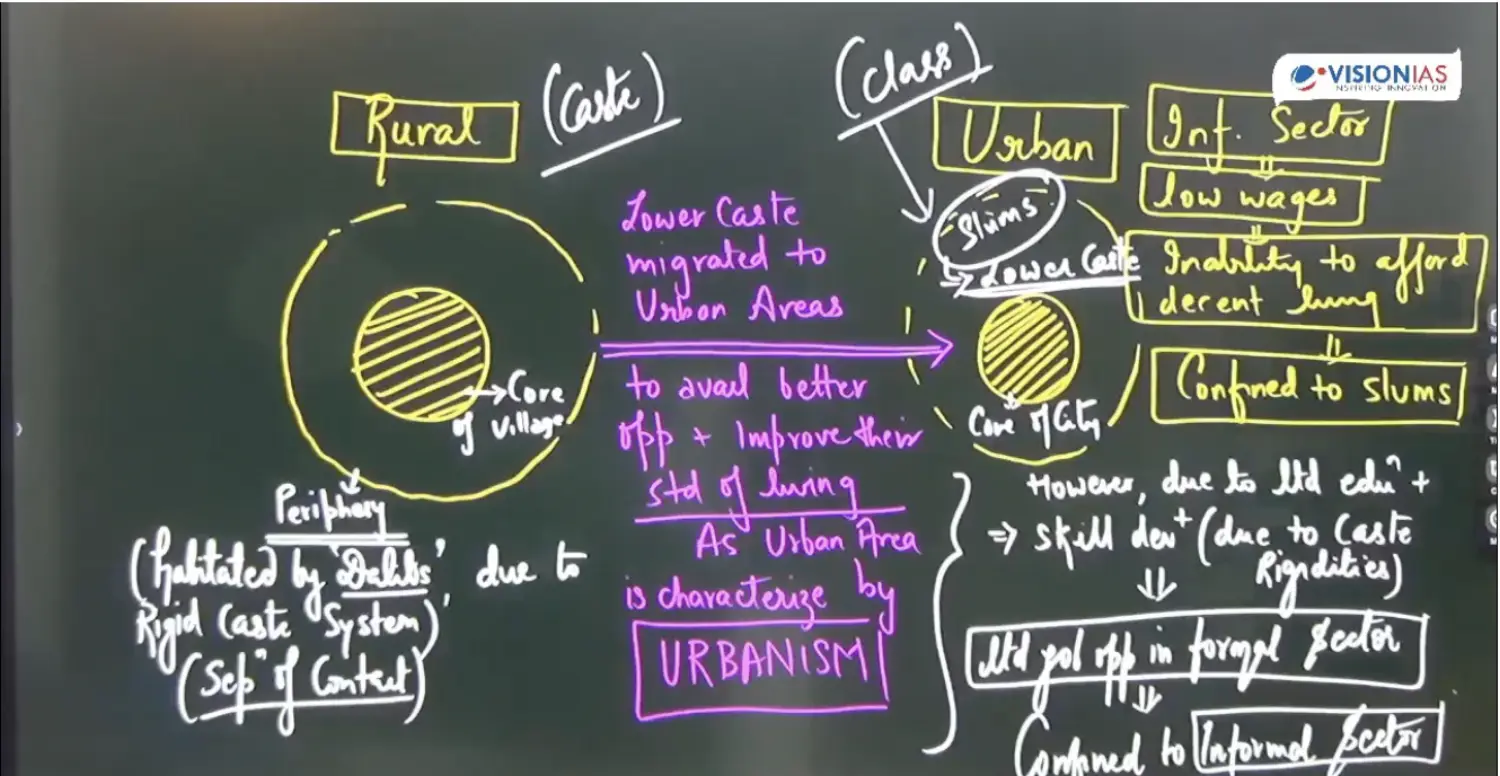 VISIONIAS
INSPIRING INNOVATION
Rural
(Caste)
(Class)
Urban
Inf. Sector
low wages
Inability to afford
decent living
Confined to slums
Slums
→ Lower Caste
Core of City
→ Core
of village
Periphery
(habitated by 'Dalits' due to
Rigid Caste System)'
(Sepⁿ of Contact)
Lower Caste
migrated to
Urban Areas
to avail better
opp + Improve their
std of living
As Urban Area
is characterize by
URBANISM
However, due to ltd eduⁿ +
⇒ skill dev⁺ (due to Caste
Rigidities)
ltd opp in formal Sector
Confined to Informal Sector